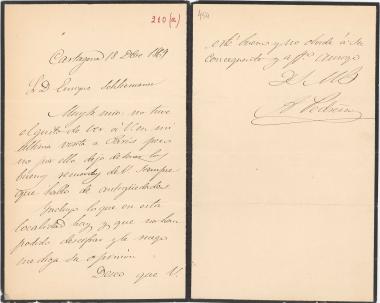 210 (a)
Cartagena 18 Dbre 1889
Sr D. Enrique Schliemann
Muy Sr mio: no tuve
el gusto de ver á V. en mi
última visita á Paris pero
no por ello dejo de tener los
buenos recuerdos de V. siempre
que hablo de antigüedades
Incluyo lo que en esta
localidad hay y que no han
podido descifrar y le ruego
me diga su opinion
Deseo que V.
454
esté bueno y no olvide á su
y affmo amigo
Q B S M